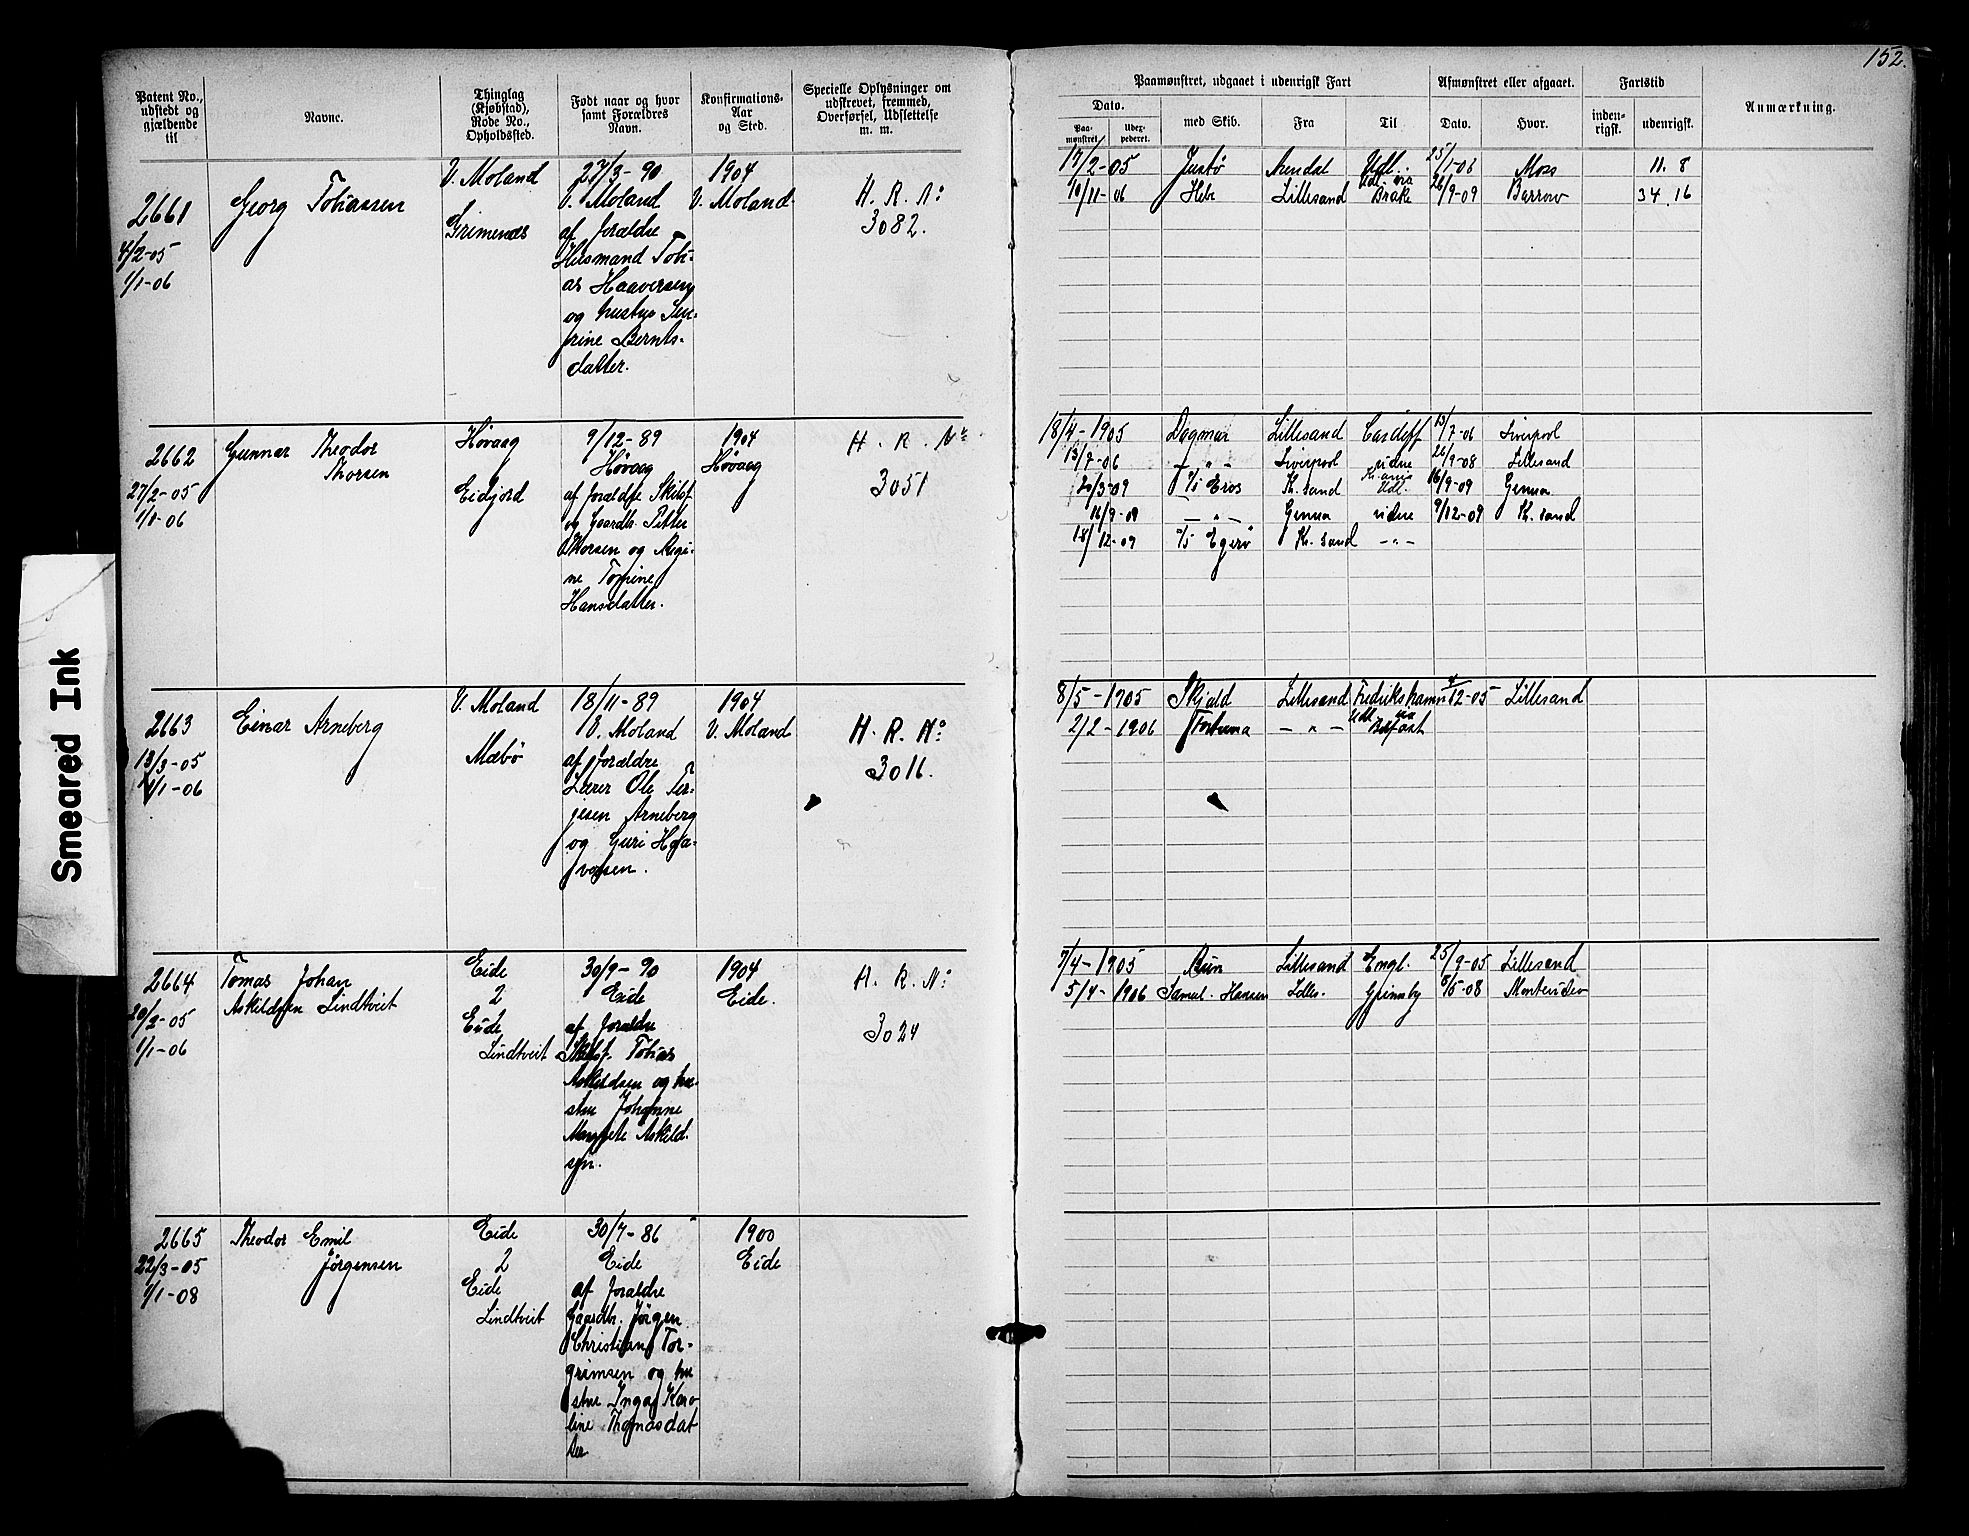 152.
Patent No., udstedt og gjældende til
Navne.
Thinglag (Kjøbstad), Rode No., Opholdssted.
Født naar og hvor samt Forældres Navn.
Konfirmations-Aar og Sted.
Specielle Oplysninger om udskrevet, fremmed, Overførsel, Udslettelse m. m.
Paamønstret, udgaaet i udenrigsk Fart
Dato.
Paa-mønstret.
Udex-pederet.
med Skib.
Fra
Til
Afmønstret eller afgaaet.
Dato.
Hvor.
Fartstid
inden-rigsk.
udenrigsk.
Anmærkning.
2661
4/2-05
1/1-06
Georg Tobiassen
V. Moland
Grimenæs
27/3-90
V. Moland
af forældre
Husmand Tobi-
as Haaversen
og hustru
Bernts-
datter.
1904
V. Moland
H. R. No
3082.
17/2-05 Justø Arendal Udl. 25/1-06 Moss 11. 8
10/11-06 Hebe Lillesand Udl. via Brake 26/9-09 Barrow 34. 16
2662
27/2-05
1/1-06
Gunnar Theodor
Thorsen
Høvaag
Eidjord
9/12-89
Høvaag
af forældre Skibsf.
og Gaardb. Petter
Thorsen og Regi-
ne Tomine
Hansdatter.
1904
Høvaag
H. R. No
3051
18/4-1905 Dagmar Lillesand Cardiff 13/7-06 Liverpool
13/7-06 - " - Liverpool videre 26/9-08 Lillesand
20/3-09 D/S Eros Kr. sand Udl. 16/9-09 Genua
16/9-09 - " - Genua videre 9/12-09 Kr. sand
18/12-09 D/S Egerø Kr. sand - " -
2663
13/3-05
1/1-06
Einar Arneberg
V. Moland
Mæbø
18/11-89
V. Moland
af forældre
Lærer Ole Ter-
jesen Arneberg
og Guri Haa-
vorsen.
1904
V. Moland
H. R. No
3016.
8/5-1905 Skjold Lillesand Fredrikshamn 4/12-05 Lillesand
2/2-1906 Fortuna - " - Udl. via Belfast
2664
20/2-05
1/1-06
Tomas Johan
Askildsen Lindtveit
Eide
2
Eide
Lindtveit
30/9-90
Eide
af forældre
Skibsf. Tobias
Askildsen og hu-
stru Johanne
Margrete Askild-
sen.
1904
Eide.
H. R. No
3024
7/4-1905 Run Lillesand Engl. 25/9-05 Lillesand
5/4-1906 Samuel Hansen Lilles. Grimsby 9/5-08 Montevideo
2665
22/3-05
1/1-08
Theodor Emil
Jörgensen
Eide
2
Eide
Lindtveit
30/7-86
Eide
af forældre
Gaardb. Jörgen
Christian Tor-
grimsen og hu
stru Inga Karo
line Thomasdat
ter
1900
Eide
Smeared Ink